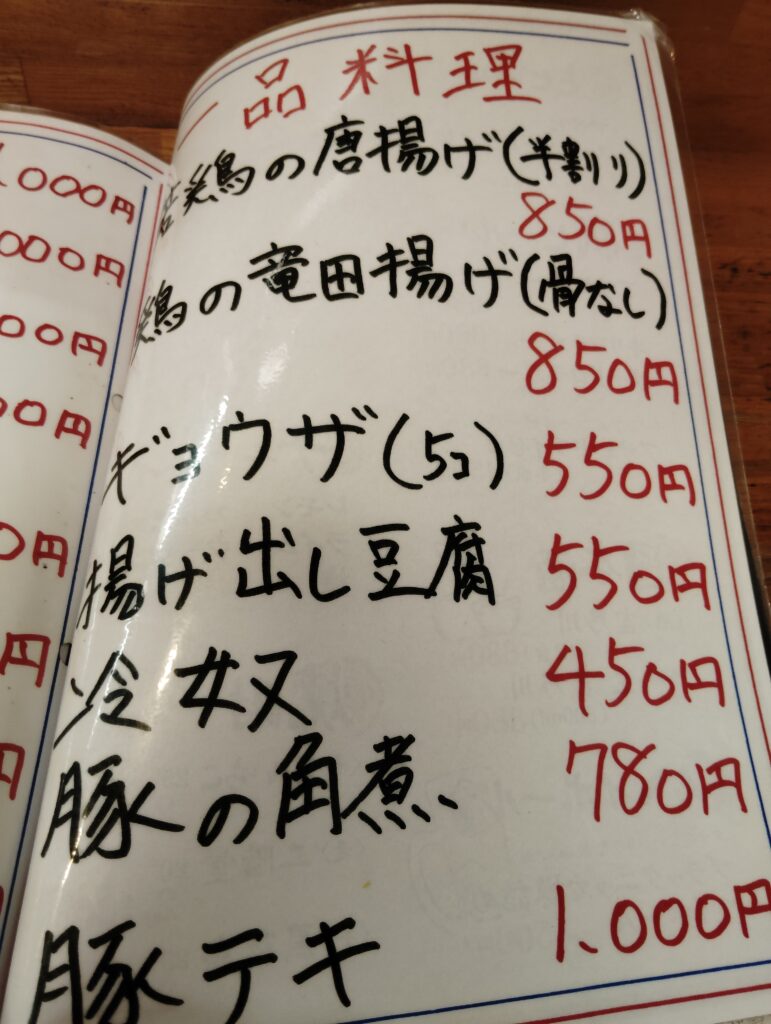 一品料理
若鶏の唐揚げ(半割り)
850円
鶏の竜田揚げ(骨なし)
850円
ギョウザ(5コ) 550円
揚げ出し豆腐 550円
冷奴 450円
豚の角煮 780円
豚テキ 1,000円
1,000円
000円
00円
00円
0円
円
円